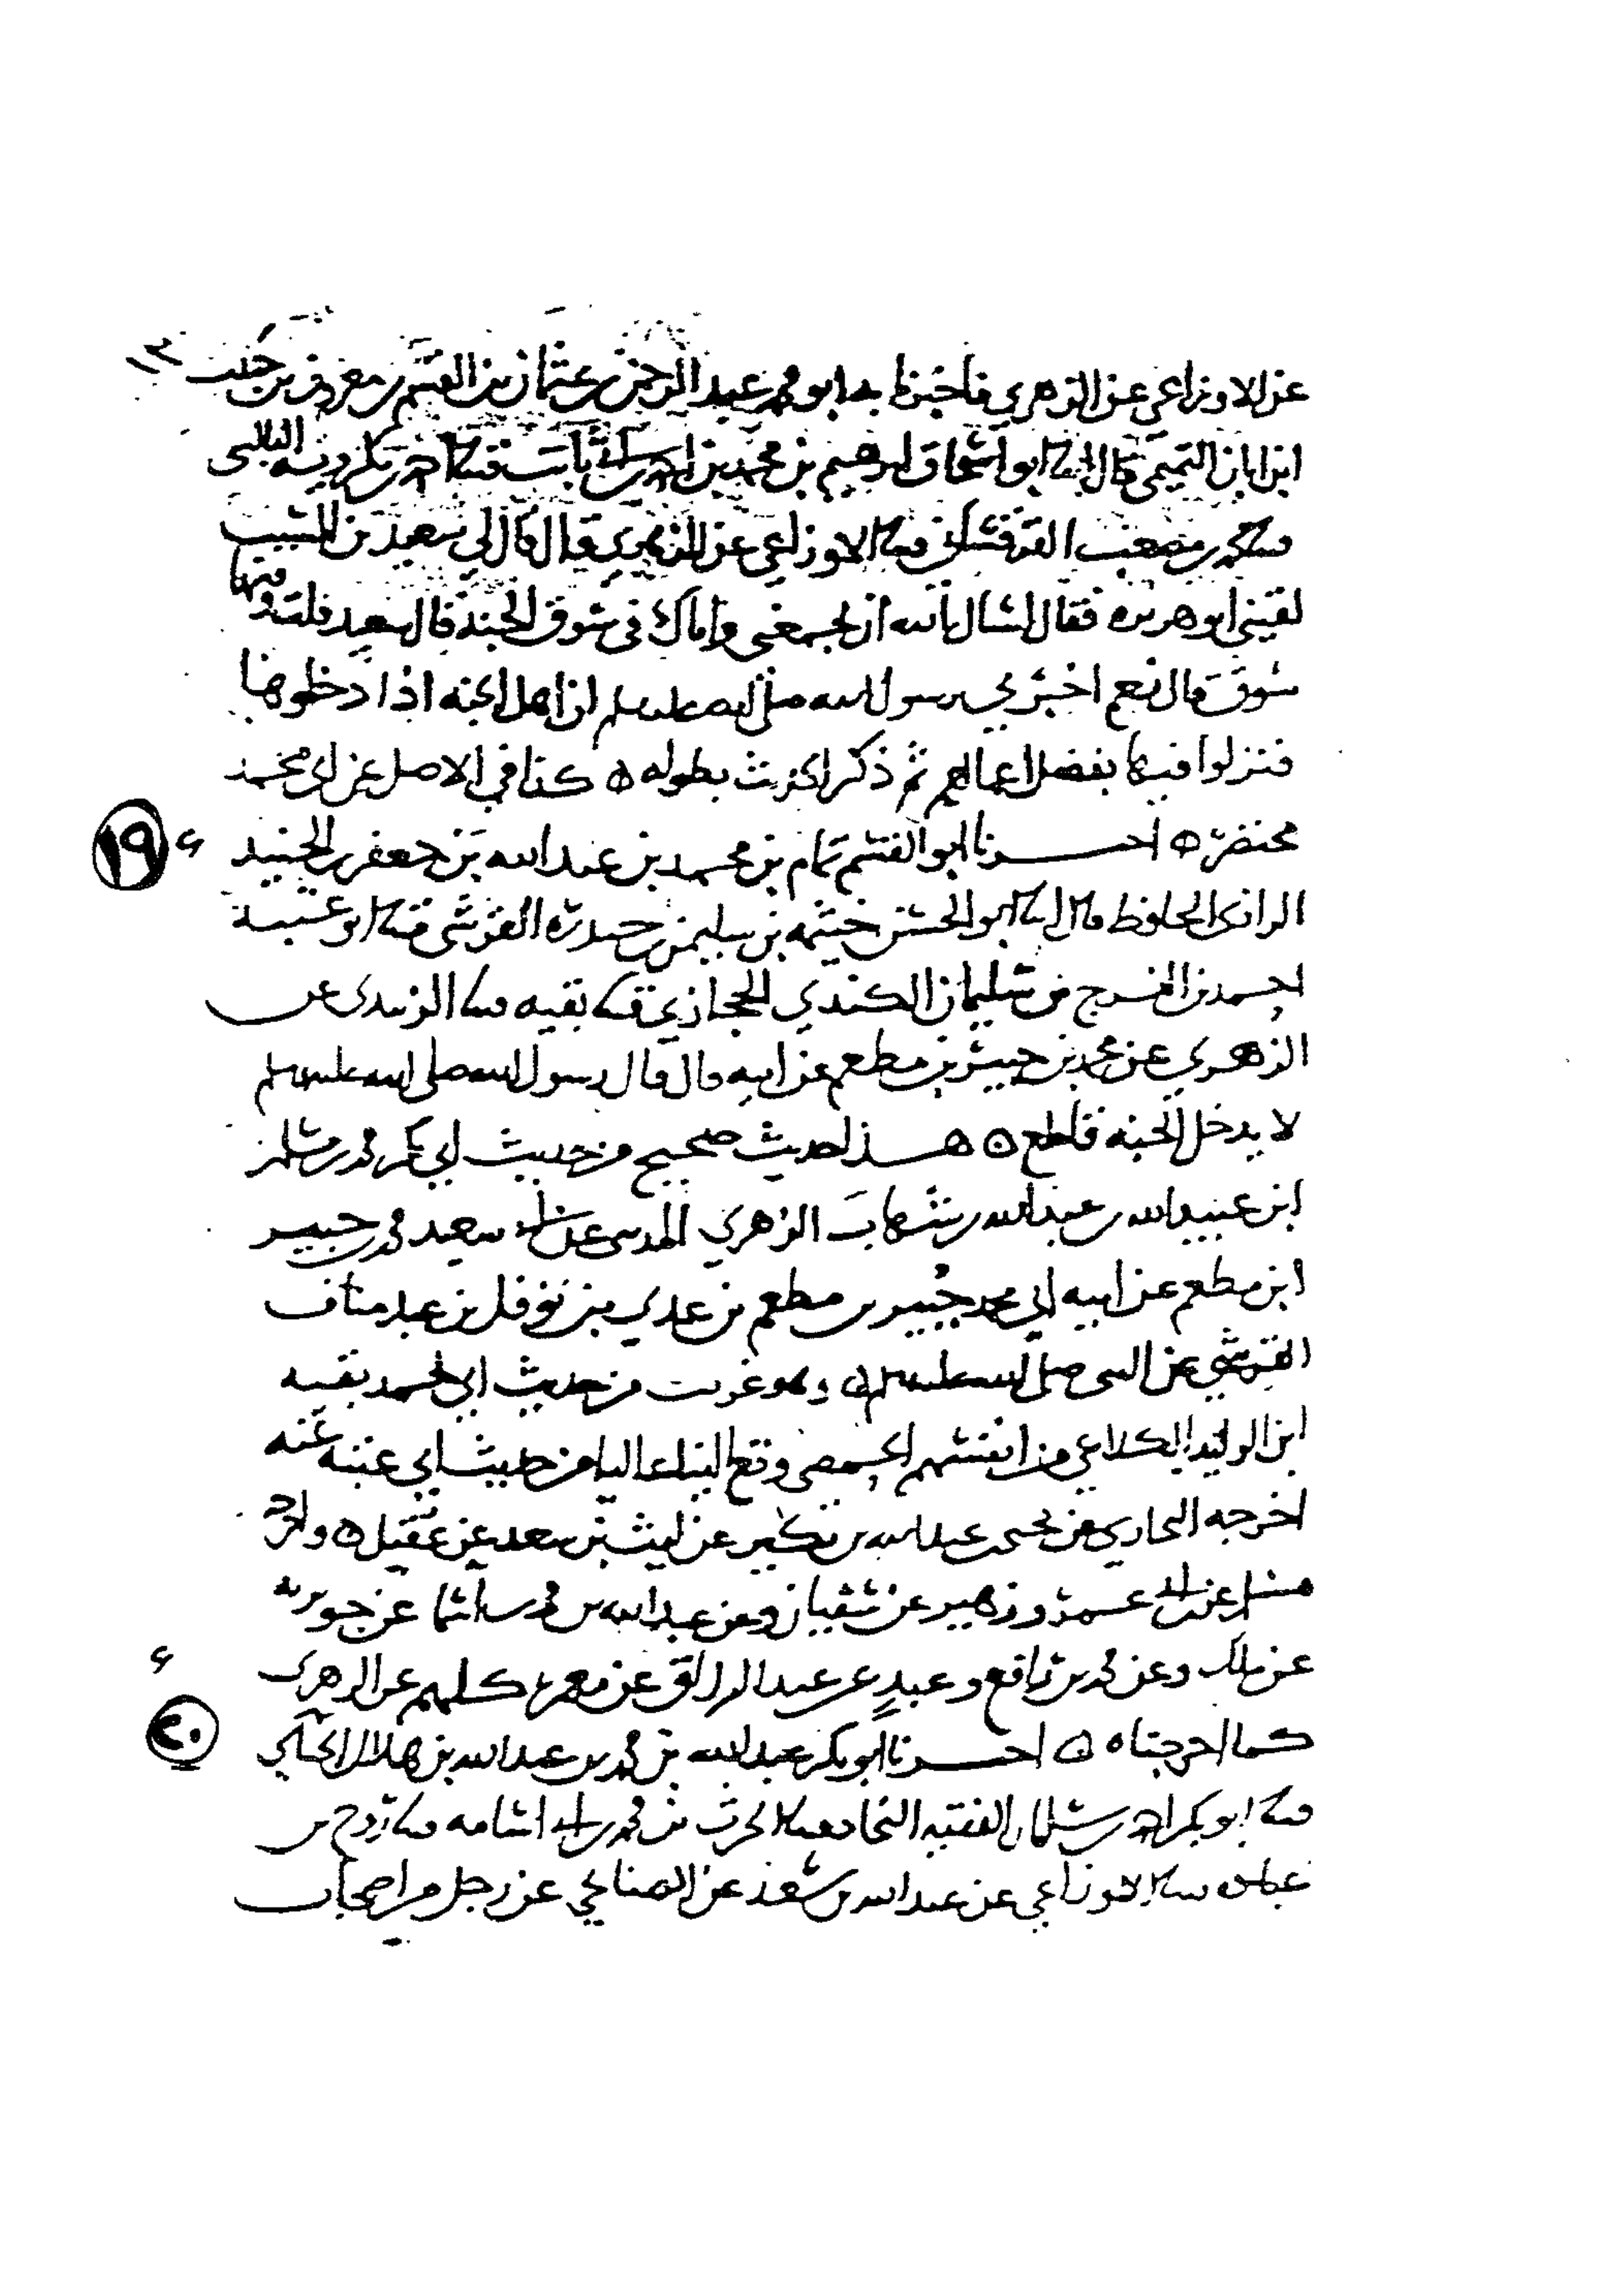 عن الاوزاعي عن الزهري فاخبرنا به ابو محمد عبد الرحمن بن عثمان بن القسم بن معروف بن حبيب
ابن ابان التميمي قال ابنا ابو اسحاق ابرهيم بن محمد بن احمد بن ابي ثابت ثنا احمد بن بكرويه البالسي
ثنا محمد بن مصعب القرقساني ثنا الاوزاعي عن الزهري قال قال لي سعيد بن المسيب
لقيني ابو هريره فقال اسال الله ان يجمعني واياك في سوق الجنة قال سعيد فقلت وفيها
سوق قال نعم اخبرني رسول الله صلى الله عليه وسلم ان اهل الجنه اذا دخلوها
فنزلوا فيها بفضل اعمالهم ثم ذكر الحديث بطوله ه كذا في الاصل عن ابي محمد
مختصر ه اخبرنا ابو القسم تمام بن محمد بن عبد الله بن جعفر بن الجنيد
الرازي الحافظ قال ابنا ابو الحسن خيثمه بن سليمن بن حيدره القرشي ثنا ابو عتبة
احمد بن الفرج بن سليمان الكندي الحجازي ثنا بقيه ثنا الزبيدي عن
الزهري عن محمد بن جبير بن مطعم عن ابيه قال قال رسول الله صلى الله عليه وسلم
لا يدخل الجنه قاطع ه هذا حديث صحيح من حديث ابي بكر محمد بن مسلم
ابن عبيد الله بن عبد الله بن شهاب الزهري المدني عن ابي سعيد محمد بن جبير
ابن مطعم عن ابيه ابي محمد جبير بن مطعم بن عدي بن نوفل بن عبد مناف
القرشي عن النبي صلى الله عليه وسلم ه وهو غريب من حديث ابي يحمد بقيه
ابن الوليد الكلاعي من انفسهم الحمصي وقع الينا عاليا من حديث ابي عتبه عنه
اخرجه البخاري عن يحيى بن عبد الله بن بكير عن ليث بن سعد عن عقيل ه واخرجه
مسلم عن ابن ابي عمر وزهير عن سفيان وعن عبد الله بن محمد بن اسما عن جويريه
عن ملك وعن محمد بن رافع وعبد عن عبد الرزاق عن معمر كلهم عن الزهري
كما اخرجناه ه اخبرنا ابو بكر عبد الله بن محمد بن عبد الله بن هلال الحنائي
ثنا ابو بكر احمد بن سلمان الفقيه النجاد ثنا الحرث بن محمد بن ابي اسامه ثنا روح بن
عباده ثنا الاوزاعي عن عبد الله بن سعد عن الصنابحي عن رجل من اصحاب
١٣
١٩
٢٠